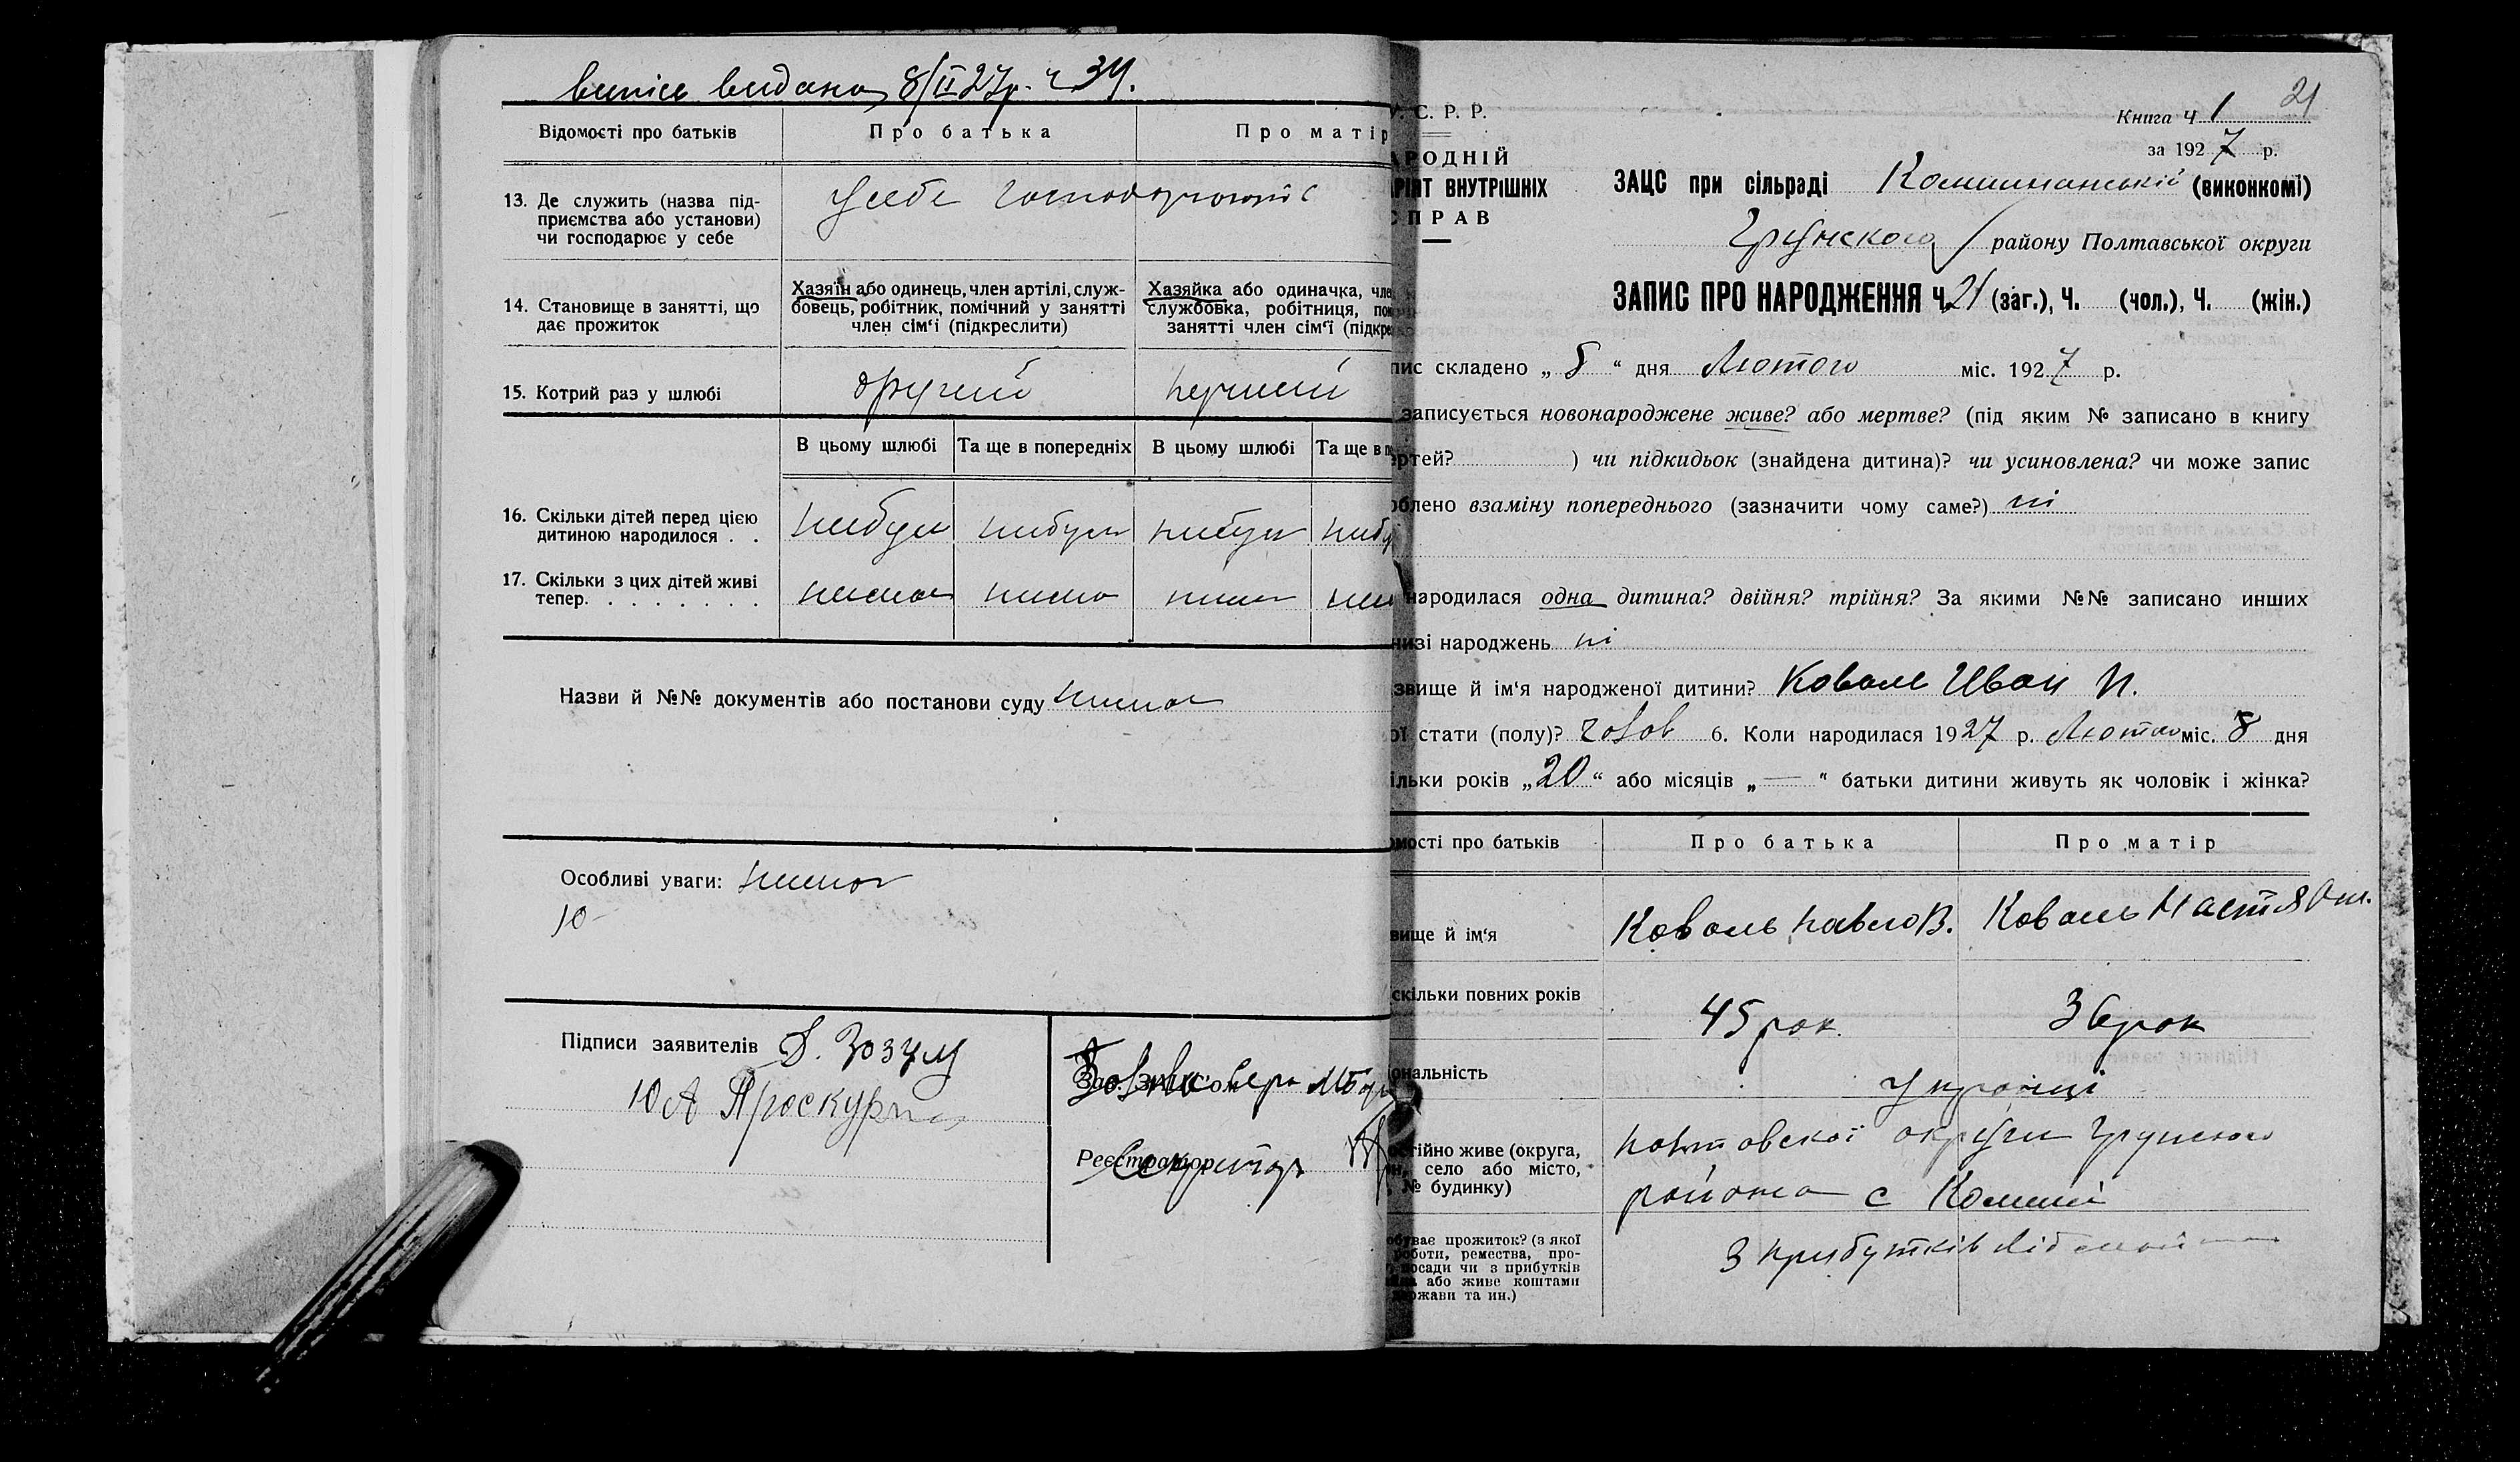 випісь видана 8/II 27р. ч 34.
Відомості про батьків
Про батька
Про матір
13. Де служить (назва під-
приємства або установи)
чи господарює у себе
у себе
14. Становище в занятті, що
дає прожиток
Хазяїн або одинець, член артілі, служ-
бовець, робітник, помічний у занятті
член сім'ї (підкреслити)
Хазяйка або одиначка, чле
службовка, робітниця, пом
занятті член сім'ї (підкре
15. Котрий раз у шлюбі
другий
перший
В цьому шлюбі
Та ще в попередніх
В цьому шлюбі
Та ще в п
16. Скільки дітей перед цією
дитиною народилося . .
небули
небули
небули
небу
17. Скільки з цих дітей живі
тепер. . . . . . . .
нима
нима
нима
ним
Назви й №№ документів або постанови суду нима
Особливі уваги: нима
10
Підписи заявителів Д. Зозуля
Ю А Проскурна
Зав. ЗАЦС'ом
Реєстратор
Секритарь
21
У. С. Р. Р.
АРОДНІЙ
АРІЯТ ВНУТРІШНІХ
СПРАВ
Книга Ч 1
за 1927 р.
ЗАЦС при сільраді Комишанській (виконкомі)
Грунського району Полтавської округи
ЗАПИС ПРО НАРОДЖЕННЯ Ч. 21 (заг.), Ч. (чол.), Ч. (жін.)
пис складено „ 8 “ дня Лютого міс. 1927 р.
записується новонароджене живе? або мертве? (під яким № записано в книгу
ертей? ) чи підкидьок (знайдена дитина)? чи усиновлена? чи може запис
облено взаміну попереднього (зазначити чому саме?) ні
народилася одна дитина? двійня? трійня? За якими №№ записано инших
низі народжень ні
звище й ім'я народженої дитини? Коваль Иван П.
ої стати (полу)? чолов 6. Коли народилася 1927 р. Лютого міс. 8 дня
ільки років „20“ або місяців „—“ батьки дитини живуть як чоловік і жінка?
омості про батьків
Про батька
Про матір
вище й ім'я
Коваль Павло В.
Коваль Настя
скільки повних років
45 рок
36 рок
ональність
Українці
остійно живе (округа,
н, село або місто,
№ будинку)
Полтовскої округи Грунского
района с Комиші
обуває прожиток? (з якої
роботи, ремества, про-
посади чи з прибутків
або живе коштами
ржави та ин.)
З прибутків від